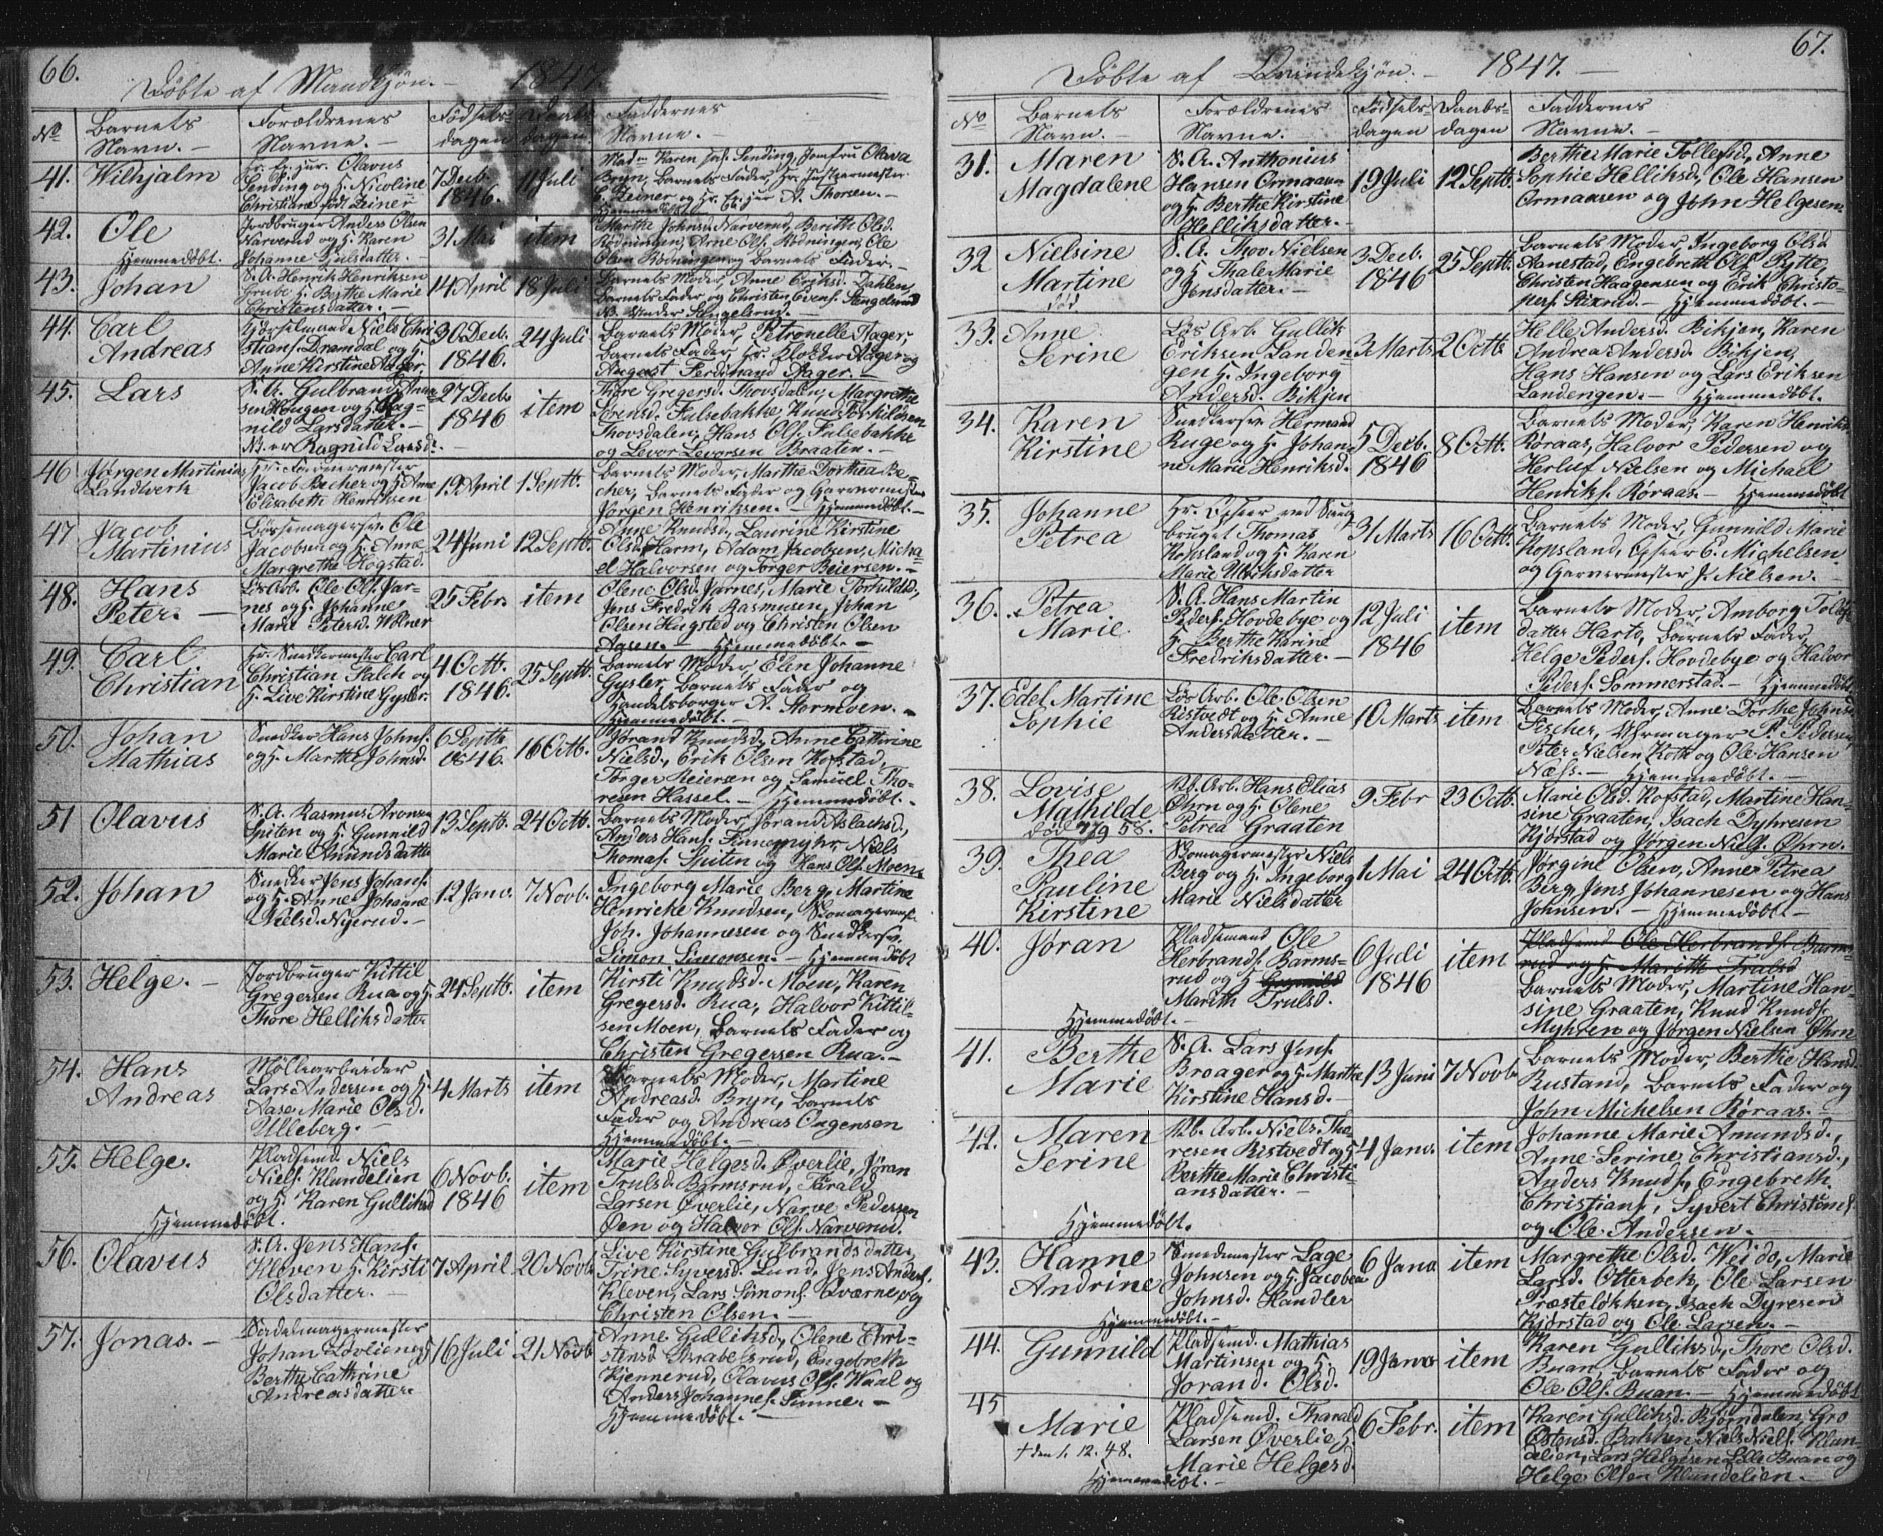 66.
Döbte af Mandkjön. – 1847.
No Barnets Navn. – Forældrenes Navne. – Födselsdagen Daabsdagen Faddernes Navne. –
41. Wilhjalm
Hr. Ex. jur. Olavus
Sending og H. Nicoline
Christiane född Zeiner
7 Decb. 1846. 11 Juli
Madm Karen Sending, Jomfru Olava
Bryn, Barnets Fader, Hr. Justermester
C. Zeiner og Hr. Ex. jur A. Thorsen. –
42. Ole
Hjemmedöbt.
Jordbruger Anders Olsen
Narverud og H. Karen
Johanne Julsdatter. –
31 Mai item
Hjemmedöbt
Marthe Johnsd. Narverud, Berith Olsd.
Rödningen, Arne Ols. Rödningen, Ole
Olsen Rödningen og Barnets Fader. –
43. Johan
S. A. Henrik Henriksen
Grube H. Berthe Marie
Christensdatter. –
14 April 18 Juli
Barnets Moder, Anne Eriksd. Dahlen,
Barnets Fader og Christen Evens. Sengelsrud
44. Carl
Andreas
Niels Chri
stians. Dramdal og H.
Anne Kirstine Aager.
30 Decb. 1846. 24 Juli
Barnets Moder, Petronelle Aager,
Barnets Fader, Hr. Klokker Aager og
August Ferdinand Aager. –
45. Lars
S. A. Gulbrand Ander
sen Hougen og H. Rag-
nild Larsdatter. –
NB. er Ragnild Larsd.
27 Decb. 1846 item
Thore Gregersd. Thovsdalen, Margrethe
Svensd. Fulsebakke, Knud Torkildsen
Thovsdalen, Hans Ols. Fulsebakke
og Levor Levorsen Braaten. –
46 Jörgen Martinius
Landverk
Hr. Farvermester
Jacob Becher og H. Anne
Elisabeth Henriksen
19 April 1 Septb.
Barnets Moder, Marthe Dorthea Be-
cher, Barnets Fader og Garvermester
Jörgen Henriksen. – Hjemmedöbt. –
47 Jacob
Martinius
Bössemagersv. Ole
Jacobsen og H. Anne
Margrethe Hogstad.
24 Juni 12 Septb.
Anne Knudsd., Laurine Kirstine
Olsd. Harm, Adam Jacobsen, Micha
el Halvorsen og Torger Beiersen. –
48. Hans
Peter. –
Lös Arb. Ole Ols. Jar-
nes og H. Johanne
Marie Petersd. Wölner
25 Febr. item
Olene Olsd. Jarnes, Marie Torkildsd,
Jens Fredrik Rasmusen, Johan
Olsen Hugsted og Christen Olsen
Aasen. – Hjemmedöbt –
49. Carl
Christian
Hr. Snedkermester Carl
Christian Falch og
H. Live Kirstine Gysler.
4 Octb. 1846. 25 Septb.
Barnets Moder Elen Johanne
Gysler, Barnets Fader og
Handelsborger A. Stornæven. –
Hjemmedöbt. –
50. Johan
Mathias
Snedker Hans Johns.
og H. Marthe Johnsd.
6 Septb. 1846. 16 Octb.
Jörand Knudsd., Anne Cathrine
Nielsd., Erik Olsen Kofstad,
Torger Reiersen og Samuel Tho-
resen Hassel. – Hjemmedöbt. –
51 Olavus
S. A. Rasmus Aronsen
Spiten og H. Gunnild
Marie Amundsdatte
13 Septb. 24 Octb.
Barnets Moder, Jorand Aslachsd,
Anders Hans. Finnemyhr, Niels
Thomas. Spiten og Hans Ols. Moen
52. Johan
Snedker Jens Johans.
og H. Anne Johanne
Nielsd. Nyerud. –
12 Janv. 7 Novb.
Ingeborg Marie Berg, Martine
Henricke Knudsen, Skomagermst.
Joh. Johannesen og Snedkersv.
Simon Simonsen. – Hjemmedöbt
53. Helge. –
Jordbruger Kittil
Gregersen Rua og H.
Thore Helliksdatter
24 Septb. item
Kirsti Knudsd. Moen, Karen
Gregersd. Rua, Halvor Kittil-
sen Moen, Barnets Fader og
Christen Gregersen Rua. –
54. Hans
Andreas
Möllearbeider
Lars Andersen og H.
Aase Marie Olsd.
Ulleberg. –
4 Marts item
Barnets Moder, Martine
Andreasd. Bryn, Barnets
Fader og Andreas Ongensen
Hjemmedöbt. –
55. Helge.
Hjemmedöbt.
Pladsemd. Niels
Niels. Klundelien
og H. Karen Gulliksd
6 Novb. 1846 item
Marie Helgesd. Överlie, Jöran
Trulsd. Barmsrud, Tarald
Larsen Överlie, Narve Pedersen
Öen og Halvor Ols. Narverud.
56. Olavus
S. A. Jens Hans.
Kleven H. Kirsti
Olsdatter. –
7 April 20 Novb.
Live Kirstine Gulbrandsdatter,
Trine Syversd. Lund, Jens Anders.
Kleven, Lars Simons. Qværne, og
Christen Olsen. –
57. Jonas. –
Sadelmagermester
Johan Lövlien og H
Berthe Cathrine
Andreasdatter
16 Juli 21 Novb.
Anne Gulliksd., Olene Chri-
stensd Skrabelsrud, Engebreth
Kjennerud, Olavus Ols. Waal og
Anders Johannes. Simner –
Hjemmedöbt. –
67.
Döbte af Qvindekjön. – 1847. –
No Barnets Navn. – Forældrenes Navne. – Födselsdagen Daabsdagen Faddernes Navne. –
31. Maren
Magdalene
S. A. Anthonius
Hansen Ormaasen
og H. Berthe Kirstine
Helliksdatter. –
19 Juli 12 Septb.
Berthe Marie Tollefsd, Anne
Sophie Helliksd, Ole Hansen
Ormaasen og John Helgesen.
32 Nielsine
Martine
död
S. A. Thov Nielsen
og H. Thale Marie
Jensdatter. –
3 Decb. 1846 25 Septb.
Barnets Moder, Ingeborg Olsd
Aanestad, Engebreth Ols. Pytte,
Christen Haagensen og Erik Christo-
pers. Stixrud. – Hjemmedöbt. –
33. Anne
Serine
Lös Arb. Gullik
Eriksen Landen-
gen H. Ingeborg
Andersd. Bikjen
3 Marts 2 Octb.
Helle Andersd. Bikjen, Karen
Andrea Andersd. Bikjen,
Hans Hansen og Lars Eriksen
Landengen. – Hjemmedöbt.
34. Karen
Kirstine
Snedkersv. Herman
Ruge og H. Johan-
ne Marie Henriksd.
5 Decb. 1846 8 Octb.
Barnets Moder, Karen Henriksd
Röraas, Halvor Pedersen og
Herluf Nielsen og Michael
Henriks. Röraas. – Hjemmedöbt
35. Johanne
Petrea
Hr. Opseer ved Saug
bruget Thomas
Kopsland og H. Karen
Marie Ulriksdatter
31 Marts 16 Octb.
Barnets Moder, Gunnild Marie
Kopsland, Opseer C. Michelsen
og Garvermester J. Nielsen. –
36. Petrea
Marie
S. A. Hans Martin
Peders. Hovdebye og
H. Berthe Karine
Fredriksdatter. –
12 Juli 1846 item
Barnets Moder, Amborg Tollefs
datter Harto, Barnets Fader,
Helge Peders. Hovdebye og Halvor
Peders. Sommerstad. – Hjemmedöbt
37. Edel Martine
Sophie
Lös Arb. Ole Olsen
Kistvedt og H. Anne
Andersdatter. –
10 Marts item
Barnets Moder, Anne Dorthe Johnsd
Fischer, Uhrmager P. Pedersen,
Peter Nielsen Koth og Ole Hansen
Næss. – Hjemmedöbt. –
38. Lovise
Mathilde
död 7/9 58.
Rb. Arb. Hans Elias
Öhrn og H. Olene
Petrea Graaten
9 Febr 23 Octb.
Marie Olsd. Kofstad, Martine Han-
sine Graaten, Isach Dyhresen
Kjörstad og Jörgen Niels. Öhrn.
39. Thea
Pauline
Kirstine
Skomagermester Niels
Berg og H. Ingeborg
Marie Nielsdatter
1 Mai 24 Octb.
Jörgine Olsen, Anne Petrea
Berg, Jens Johannesen og Hans
Johnsen. – Hjemmedöbt –
40. Jöran
Hjemmedöbt. –
Pladsemand Ole
Herbrands. Barms-
rud og H. Gunnild
Marith Trulsd.
6 Juli 1846 item
Pladsemd Ole Herbrands. Barms-
rud og H. Marith Trulsd
Barnets Moder, Martine Han-
sine Graaten, Knud Knuds.
Myhren og Jörgen Nielsen Öhrn
41. Berthe
Marie
S. A. Lars Jens.
Broager og H. Marthe
Kirstine Hansd. –
13 Juni 7 Novb.
Barnets Moder, Berthe Hansd
Rustand, Barnets Fader og
John Michelsen Röraas. –
42. Maren
Serine
Hjemmedöbt.
Rb. Arb. Niels Tho
resen Kistvedt og H
Berthe Marie Christi
ansdatter. –
4 Janv. item
Johanne Marie Amundsd.,
Anne Serine Christiansd.,
Anders Knuds., Engebreth
Christians., Syvert Christians.
og Ole Andersen. –
43. Hanne
Andrine
Hjemmedöbt. –
Smedmester Lage
Johnsen og H. Jacobea
Johnsd. Handler
6 Janv item
Margrethe Olsd. Weido, Marie
Larsd. Otterbek, Ole Larsen
Præstelökken, Isach Dyresen
Kjörstad og Ole Larsen. –
44. Gunnild
Pladsemd. Mathias
Martinsen og H.
Jorand. Olsd.
19 Janv item
Karen Gulliksd, Thore Olsd.
Buan, Barnets Fader og
Ole Ols. Buan. – Hjemmedöbt
45
Marie
† den 1. 12. 48.
Hjemmedöbt. –
Pladsemd. Tharald
Larsen Överlie H
Marie Helgesd.
6 Febr. item
Karen Gulliksd. Björndalen, Gro
Östensd. Bakken, Niels Niels. Klun-
delien, Lars Helgesen Lille Buan og
Helge Olsen Klundelien. –